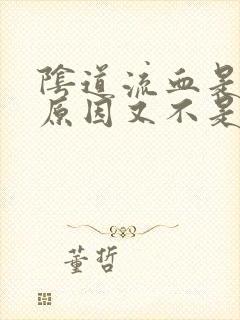 陰道流血是
原因又不是
董哲